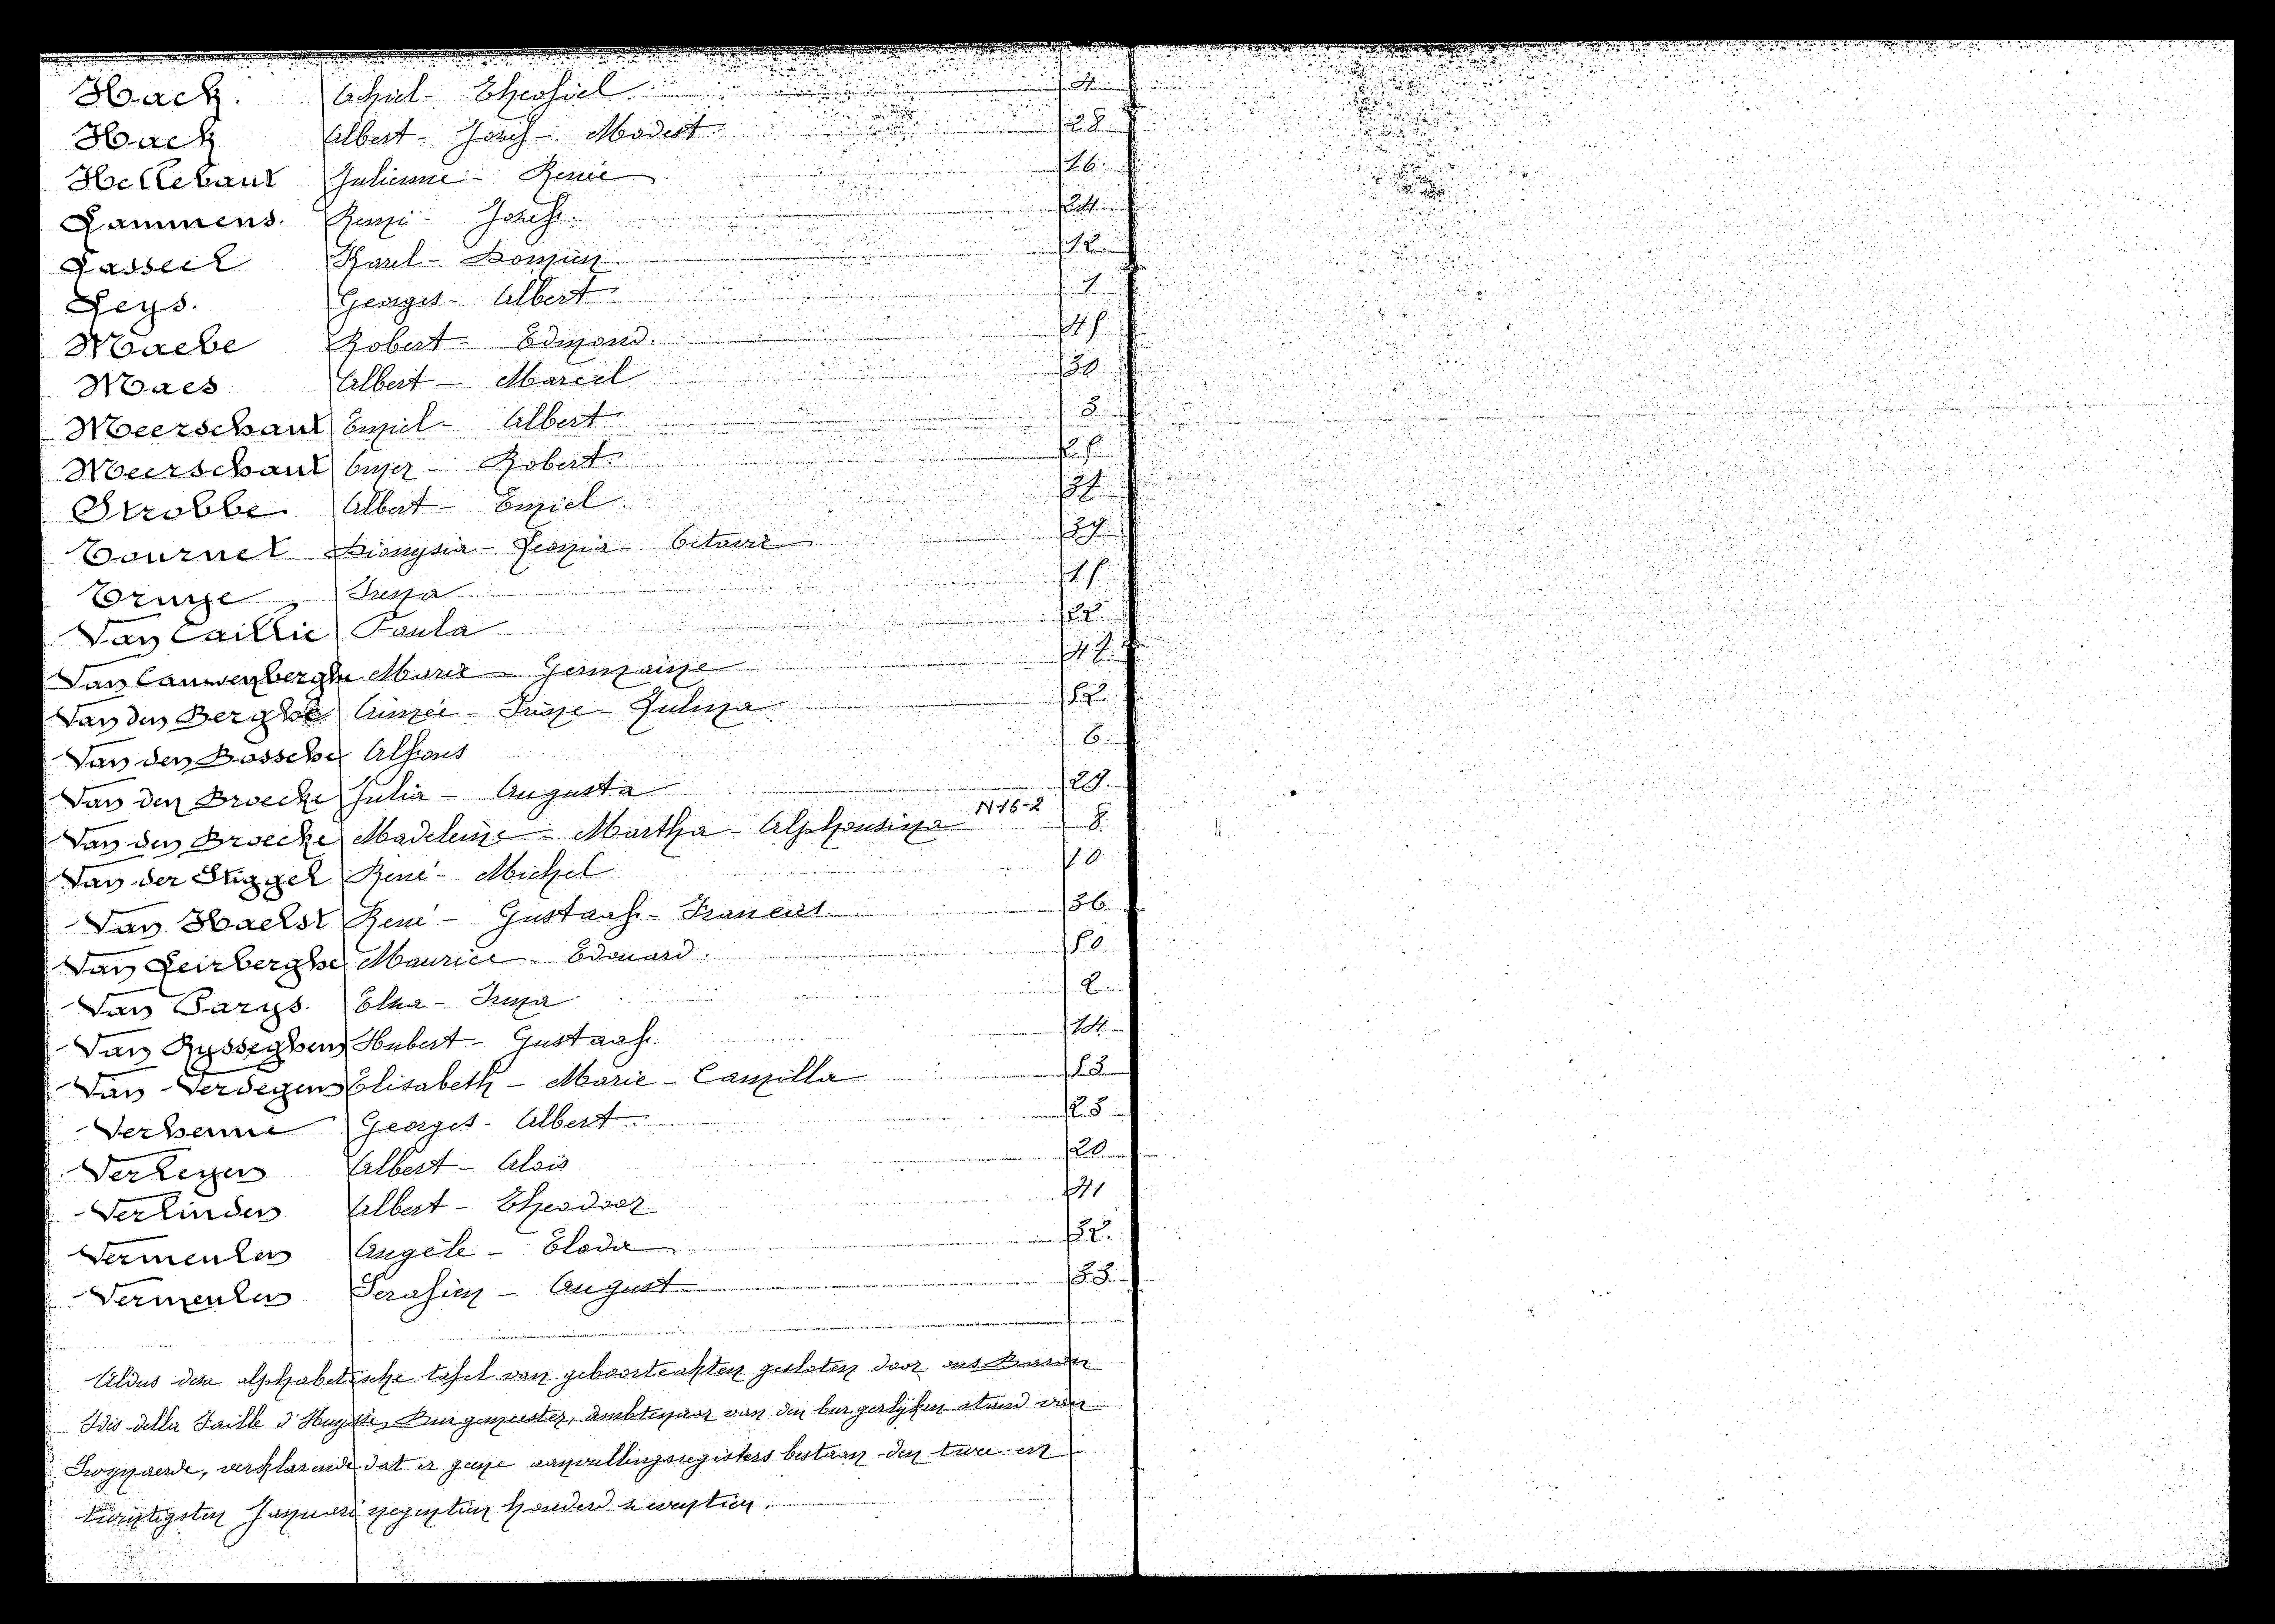 Hack. Achiel - Theofiel. 4
Hack Albert - Jozef - Modest 28
Hellebaut Julienne - Renée 16.
Lammens. Remi - Jozef. 24
Casseel Karel - Domien 12.
Leys. Georges - Albert 1
Maebe Robert - Edmond. 45
Maes Albert - Marcel 30
Meerschaut Emiel - Albert 3
Meerschaut Omer - Robert. 25
Strobbe Albert - Emiel. 37
Tournet Dionysia - Leonia - Octavie 39
Trinse Irena 15
Van Caillie Paula 22.
Van Cauwenberghe Marie - Germaine 47
Van den Berghe Aimée - Irène - Zulma 52.
Van den Bossche Alfons 6.
Van den Broecke Julia - Augusta 29.
N16-2
Van den Broecke Madeleine - Martha - Alphonsina 8.
Van der Stiggel René - Michel 10
Van Haelst René - Gustaaf - Francies. 36
Van Leirberghe Maurice - Edouard. 50
Van Parys. Elza - Irma 2
Van Rysseghem Hubert - Gustaaf. 14.
Van Verdegem Elisabeth - Marie - Camilla 53
Verhenne Georges - Albert 23
Verleyen Albert - Aloïs 20
Verlinden Albert - Theodoor 41
Vermeulen Angèle - Eloda 32.
Vermeulen Serafien - August 33.
Aldus deze alphabetische tafel van geboorteakten gesloten door ons Baron
Ides della Faille d'Huysse, Burgemeester, ambtenaar van den burgerlijken stand van
verklarende dat er geene aanvullingsregisters bestaan den twee en
twintigsten Januari negentien honderd zeventien.